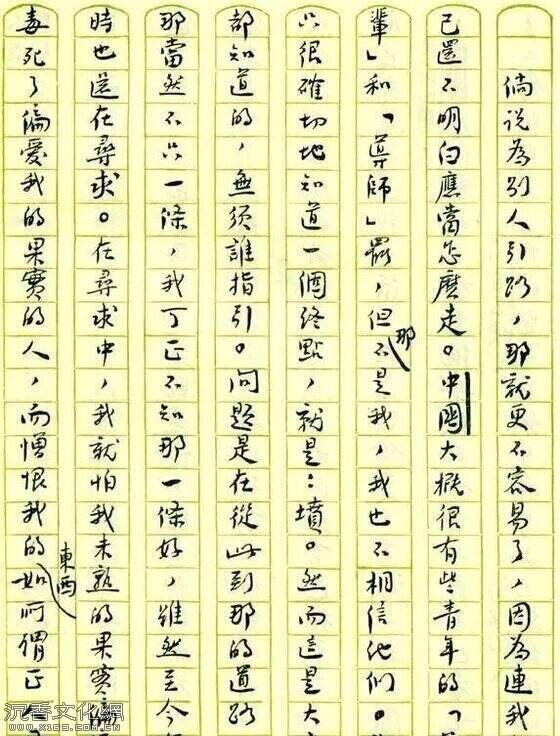 倘説為别人引路，那就更不容易了，因為連我
己還不明白應當怎麽走。中國大概很有些青年的「
輩」和「導師」罷，但那不是我，我也不相信他們。
只很確切地知道一個終點，就是：墳。然而這是大
都知道的，無須誰指引。問題是在從此到那的道路
那當然不只一條，我可正不知那一條好，雖然至今
時也還在尋求。在尋求中，我就怕我未熟的果實偏
毒死了偏愛我的果實的人，而憎恨我的東西如所謂正
沉香文化網